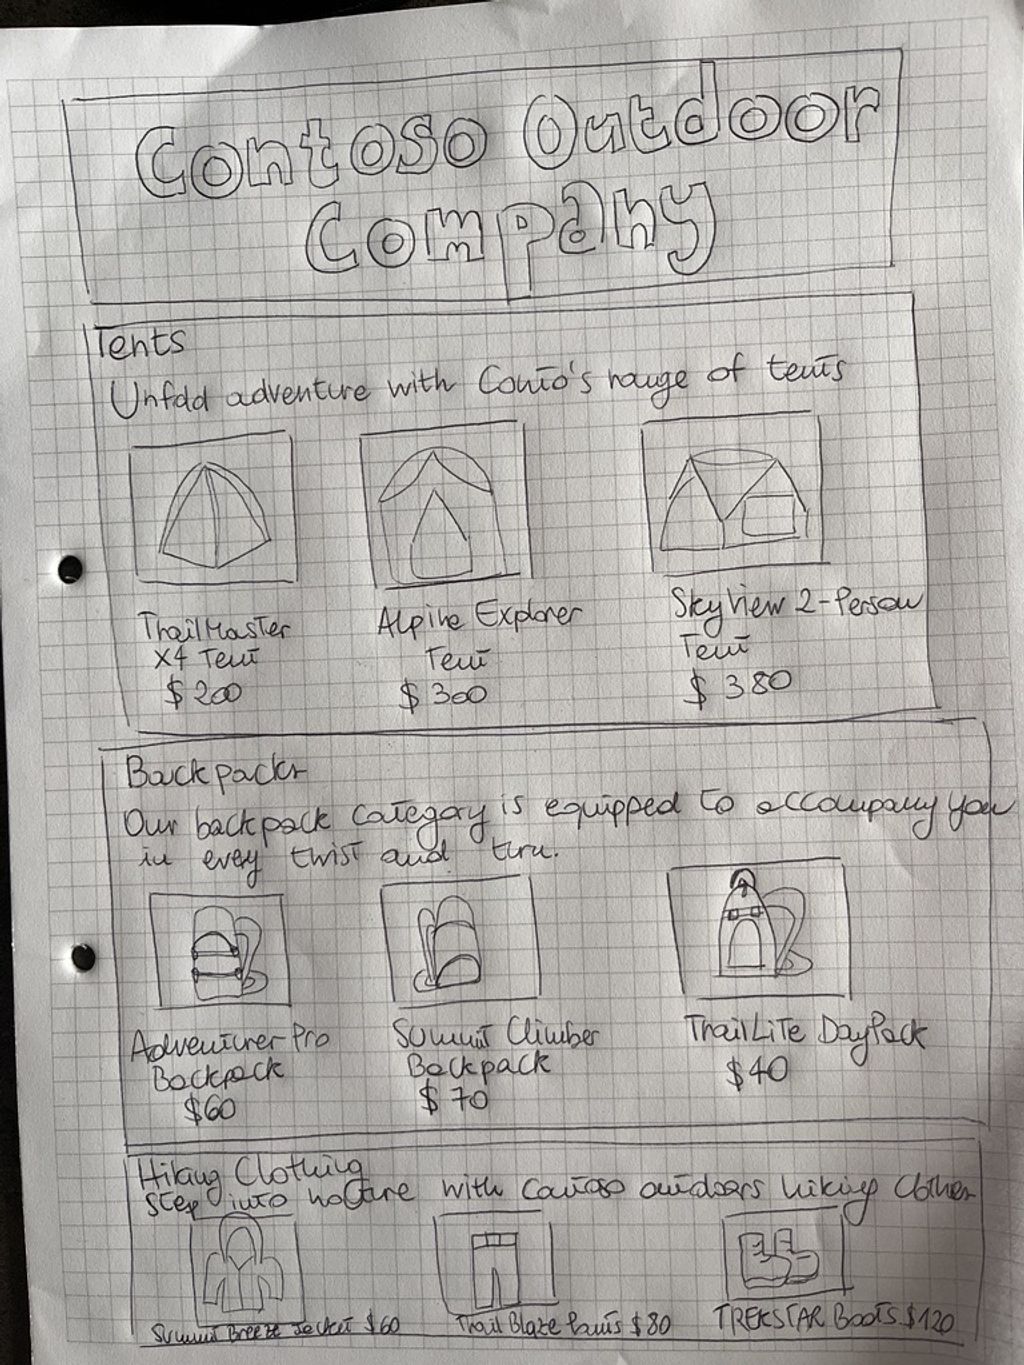 Contoso Outdoor
Company
Tents
Unfold adventure with Conto's range of tents
TrailMaster
X4 Tent
$200
Alpine Explorer
Tent
$300
SkyView 2-Person
Tent
$380
Backpacks
Our backpack category is equipped to accompany you
in every twist and turn.
Adventurer Pro
Backpack
$60
Summit Climber
Backpack
$70
TrailLite DayPack
$40
Hiking Clothing
Step into nature with Contoso outdoors hiking clothes
Summit Breeze Jacket $60
Trail Blaze Pants $80
TREKSTAR Boots $120